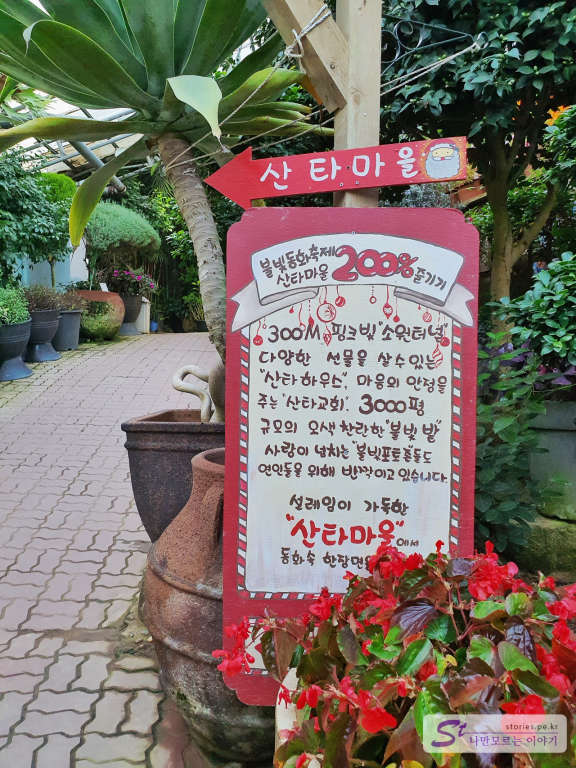 산타마을
불빛동화축제
산타마을 200% 즐기기
300M 핑크빛 "소원터널"
다양한 선물을 살수있는
"산타하우스", 마음의 안정을
주는 "산타교회", 3000평
규모의 오색 찬란한 "불빛 밭"
사랑이 넘치는 "불빛포토존"들도
연인들을 위해 반짝이고 있습니다
설레임이 가득한
"산타마을"에서
동화속 한장면
stories.pe.kr
나만모르는 이야기